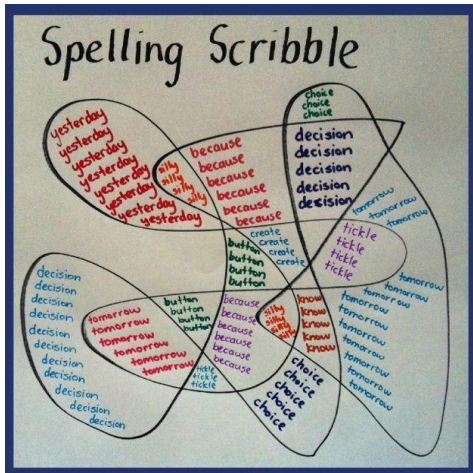 Spelling Scribble
yesterday
yesterday
yesterday
yesterday
yesterday
yesterday
yesterday
yesterday
silly
silly
silly
silly
because
because
because
because
because
because
choice
choice
choice
decision
decision
decision
decision
decision
tomorrow
tomorrow
tomorrow
create
create
create
create
button
button
button
button
tickle
tickle
tickle
tickle
decision
decision
decision
decision
decision
decision
decision
decision
decision
decision
decision
tomorrow
tomorrow
tomorrow
tomorrow
tomorrow
button
button
button
button
because
because
because
because
because
because
tickle
tickle
tickle
silly
silly
silly
silly
know
know
know
know
know
choice
choice
choice
choice
choice
tomorrow
tomorrow
tomorrow
tomorrow
tomorrow
tomorrow
tomorrow
tomorrow
tomorrow
tomorrow
tomorrow